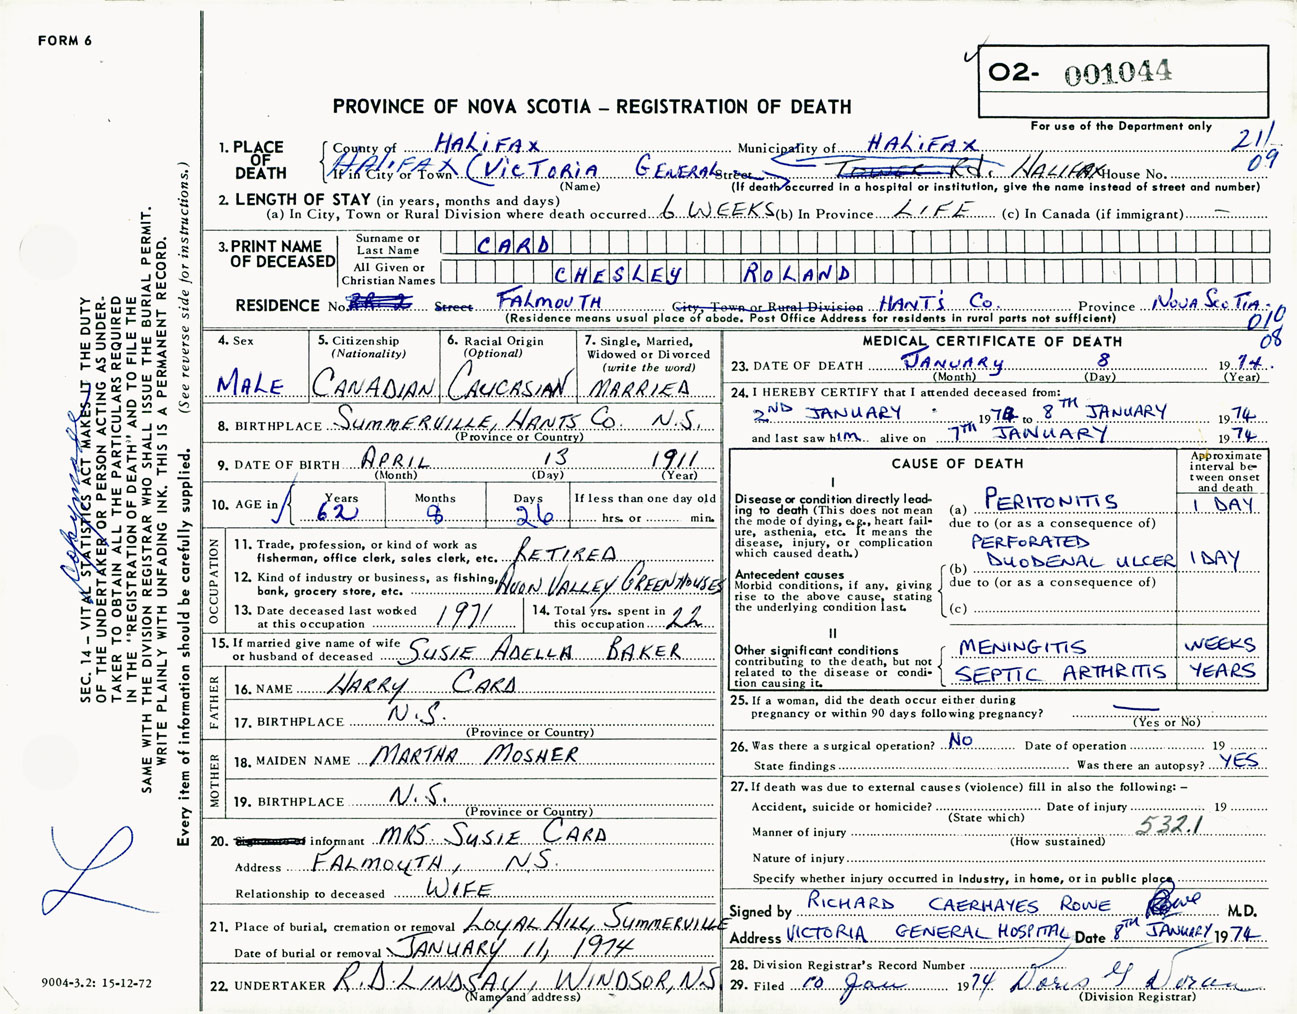 FORM 6
02- 001044
PROVINCE OF NOVA SCOTIA – REGISTRATION OF DEATH
For use of the Department only
211
09
1. PLACE OF DEATH
County of HALIFAX Municipality of HALIFAX
If in City or Town HALIFAX (VICTORIA GENERAL Street Tower Rd. HALIFAX House No.
(Name) (If death occurred in a hospital or institution, give the name instead of street and number)
2. LENGTH OF STAY (in years, months and days)
(a) In City, Town or Rural Division where death occurred 6 WEEKS (b) In Province LIFE (c) In Canada (if immigrant) –
3. PRINT NAME OF DECEASED
Surname or Last Name CARD
All Given or Christian Names CHESLEY ROLAND
RESIDENCE No. RR 2 Street FALMOUTH City, Town or Rural Division HANTS Co. Province NOVA SCOTIA
(Residence means usual place of abode. Post Office Address for residents in rural parts not sufficient)
010
08
4. Sex
MALE
5. Citizenship
(Nationality)
CANADIAN
6. Racial Origin
(Optional)
CAUCASIAN
7. Single, Married,
Widowed or Divorced
(write the word)
MARRIED
8. BIRTHPLACE SUMMERVILLE, HANTS Co. N.S.
(Province or Country)
9. DATE OF BIRTH APRIL 13 1911
(Month) (Day) (Year)
10. AGE in
Years Months Days If less than one day old
62 8 26 hrs. or min.
OCCUPATION
11. Trade, profession, or kind of work as
fisherman, office clerk, sales clerk, etc. RETIRED
12. Kind of industry or business, as fishing,
bank, grocery store, etc. AVON VALLEY GREENHOUSES
13. Date deceased last worked
at this occupation 1971
14. Total yrs. spent in
this occupation 22
15. If married give name of wife
or husband of deceased SUSIE ADELLA BAKER
FATHER
16. NAME HARRY CARD
17. BIRTHPLACE N.S.
(Province or Country)
MOTHER
18. MAIDEN NAME MARTHA MOSHER
19. BIRTHPLACE N.S.
(Province or Country)
20. informant MRS. SUSIE CARD
Address FALMOUTH, N.S.
Relationship to deceased WIFE
21. Place of burial, cremation or removal LOYAL HILL, SUMMERVILLE
Date of burial or removal JANUARY 11, 1974
22. UNDERTAKER R.D. LINDSAY, WINDSOR, N.S.
(Name and address)
MEDICAL CERTIFICATE OF DEATH
23. DATE OF DEATH JANUARY 8 1974
(Month) (Day) (Year)
24. I HEREBY CERTIFY that I attended deceased from:
2ND JANUARY 1974 to 8TH JANUARY 1974
and last saw him alive on 7TH JANUARY 1974
CAUSE OF DEATH
Approximate interval between onset and death
I
Disease or condition directly lead-
ing to death (This does not mean
the mode of dying, e.g., heart fail-
ure, asthenia, etc. It means the
disease, injury, or complication
which caused death.)
(a) PERITONITIS 1 DAY
due to (or as a consequence of)
Antecedent causes
Morbid conditions, if any, giving
rise to the above cause, stating
the underlying condition last.
PERFORATED
(b) DUODENAL ULCER 1 DAY
due to (or as a consequence of)
(c)
II
Other significant conditions
contributing to the death, but not
related to the disease or condi-
tion causing it.
MENINGITIS WEEKS
SEPTIC ARTHRITIS YEARS
25. If a woman, did the death occur either during
pregnancy or within 90 days following pregnancy? —
(Yes or No)
26. Was there a surgical operation? NO Date of operation 19
State findings Was there an autopsy? YES
27. If death was due to external causes (violence) fill in also the following: –
Accident, suicide or homicide? Date of injury 19
(State which)
Manner of injury 532.1
(How sustained)
Nature of injury
Specify whether injury occurred in industry, in home, or in public place
Signed by RICHARD CAERHAYES ROWE Rowe M.D.
Address VICTORIA GENERAL HOSPITAL Date 8TH JANUARY 1974
28. Division Registrar's Record Number
29. Filed 10 Jan 1974 Doris G Doran
(Division Registrar)
SEC. 14 – VITAL STATISTICS ACT MAKES IT THE DUTY
OF THE UNDERTAKER OR PERSON ACTING AS UNDER-
TAKER TO OBTAIN ALL THE PARTICULARS REQUIRED
IN THE "REGISTRATION OF DEATH" AND TO FILE THE
SAME WITH THE DIVISION REGISTRAR WHO SHALL ISSUE THE BURIAL PERMIT.
WRITE PLAINLY WITH UNFADING INK. THIS IS A PERMANENT RECORD.
Every item of information should be carefully supplied. (See reverse side for instructions.)
9004-3.2: 15-12-72